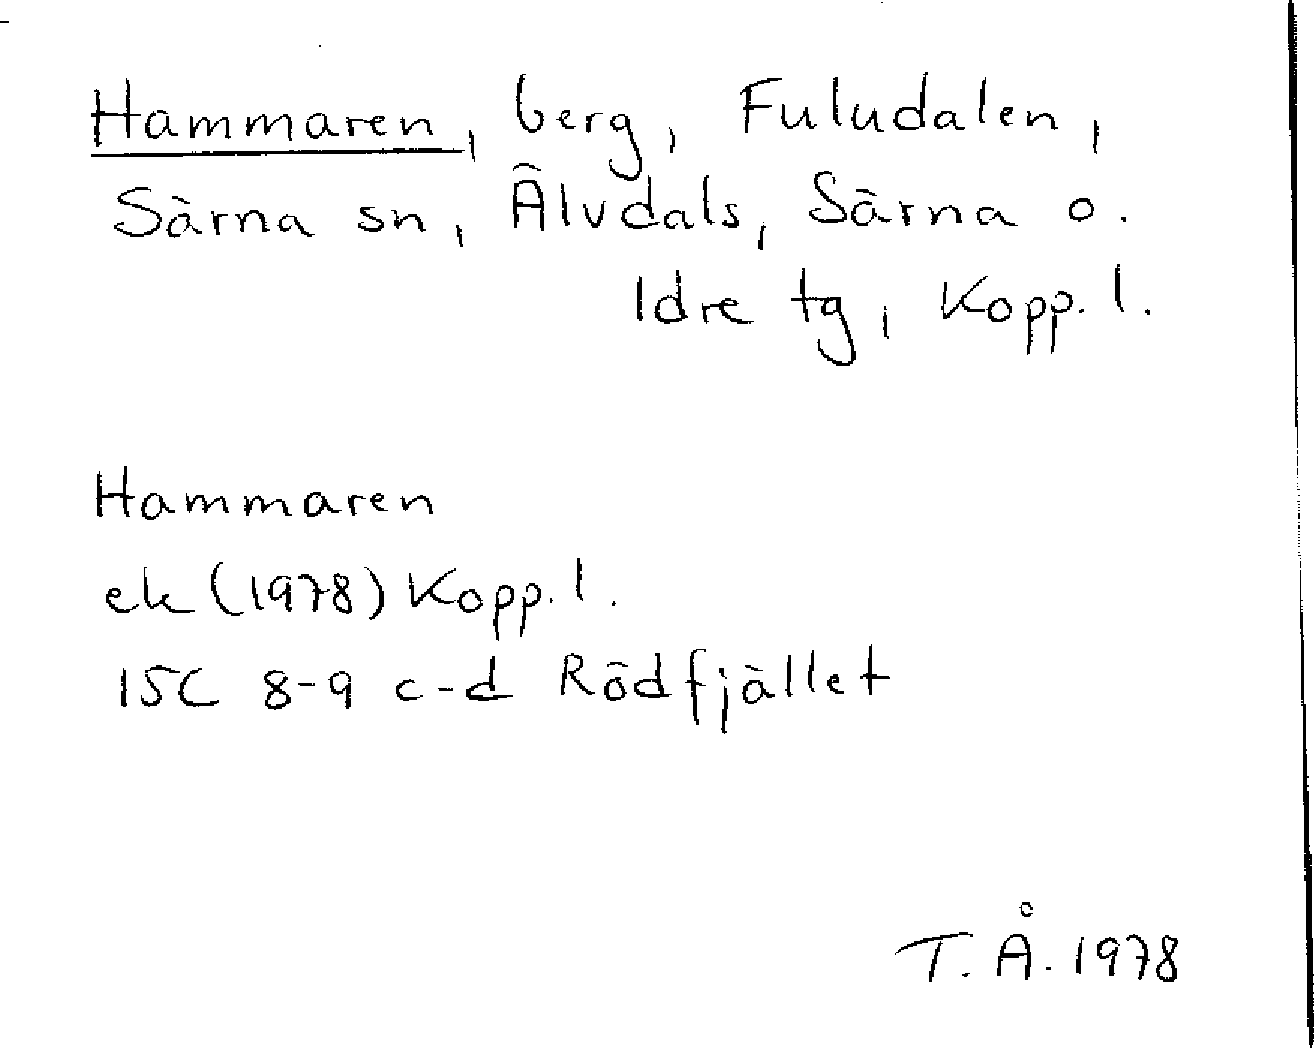 Hammaren, berg, Fuludalen,
Särna sn, Älvdals, Särna o.
Idre tg, Kopp. l.
Hammaren
ek (1978) Kopp. l.
15C 8-9 c-d Rödfjället
T. Å. 1978